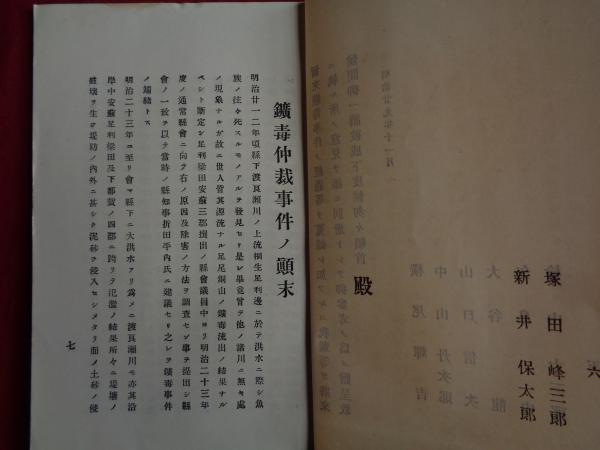 六
塚田峰三郎
新井保太郎
殿
鑛毒仲裁事件ノ顚末
明治廿一二年頃縣下渡良瀨川ノ上流桐生足利邊ニ於テ洪水ニ際シ魚
族ノ往々死スルモノアルヲ發見セリ是レ畢竟曾テ他ノ諸川ニ無キ處
ノ現象ナルガ故ニ世人皆其源流ナル足尾銅山ノ鑛毒流出ノ結果ナル
ベシト斷定シ足利梁田安蘇三郡選出ノ縣會議員中ヨリ明治二十三年
度ノ通常縣會ニ向テ右ノ原因及除害ノ方法ヲ調査セン事ヲ提出シ縣
會ノ一致ヲ以テ當時ノ縣知事折田平內氏ニ建議セリ之レヲ鑛毒事件
ノ端緖トス
明治二十三年ニ至リ會マ縣下ニ大洪水アリ爲メニ渡良瀨川モ亦其沿
岸中安蘇足利梁田及下都賀ノ四郡ニ跨リテ氾濫ノ結果所々ニ堤塘ノ
破壞ヲ生ジ堤防ノ內外ニ甚シク泥砂ヲ侵入セシメタリ而メ土砂ノ侵
七